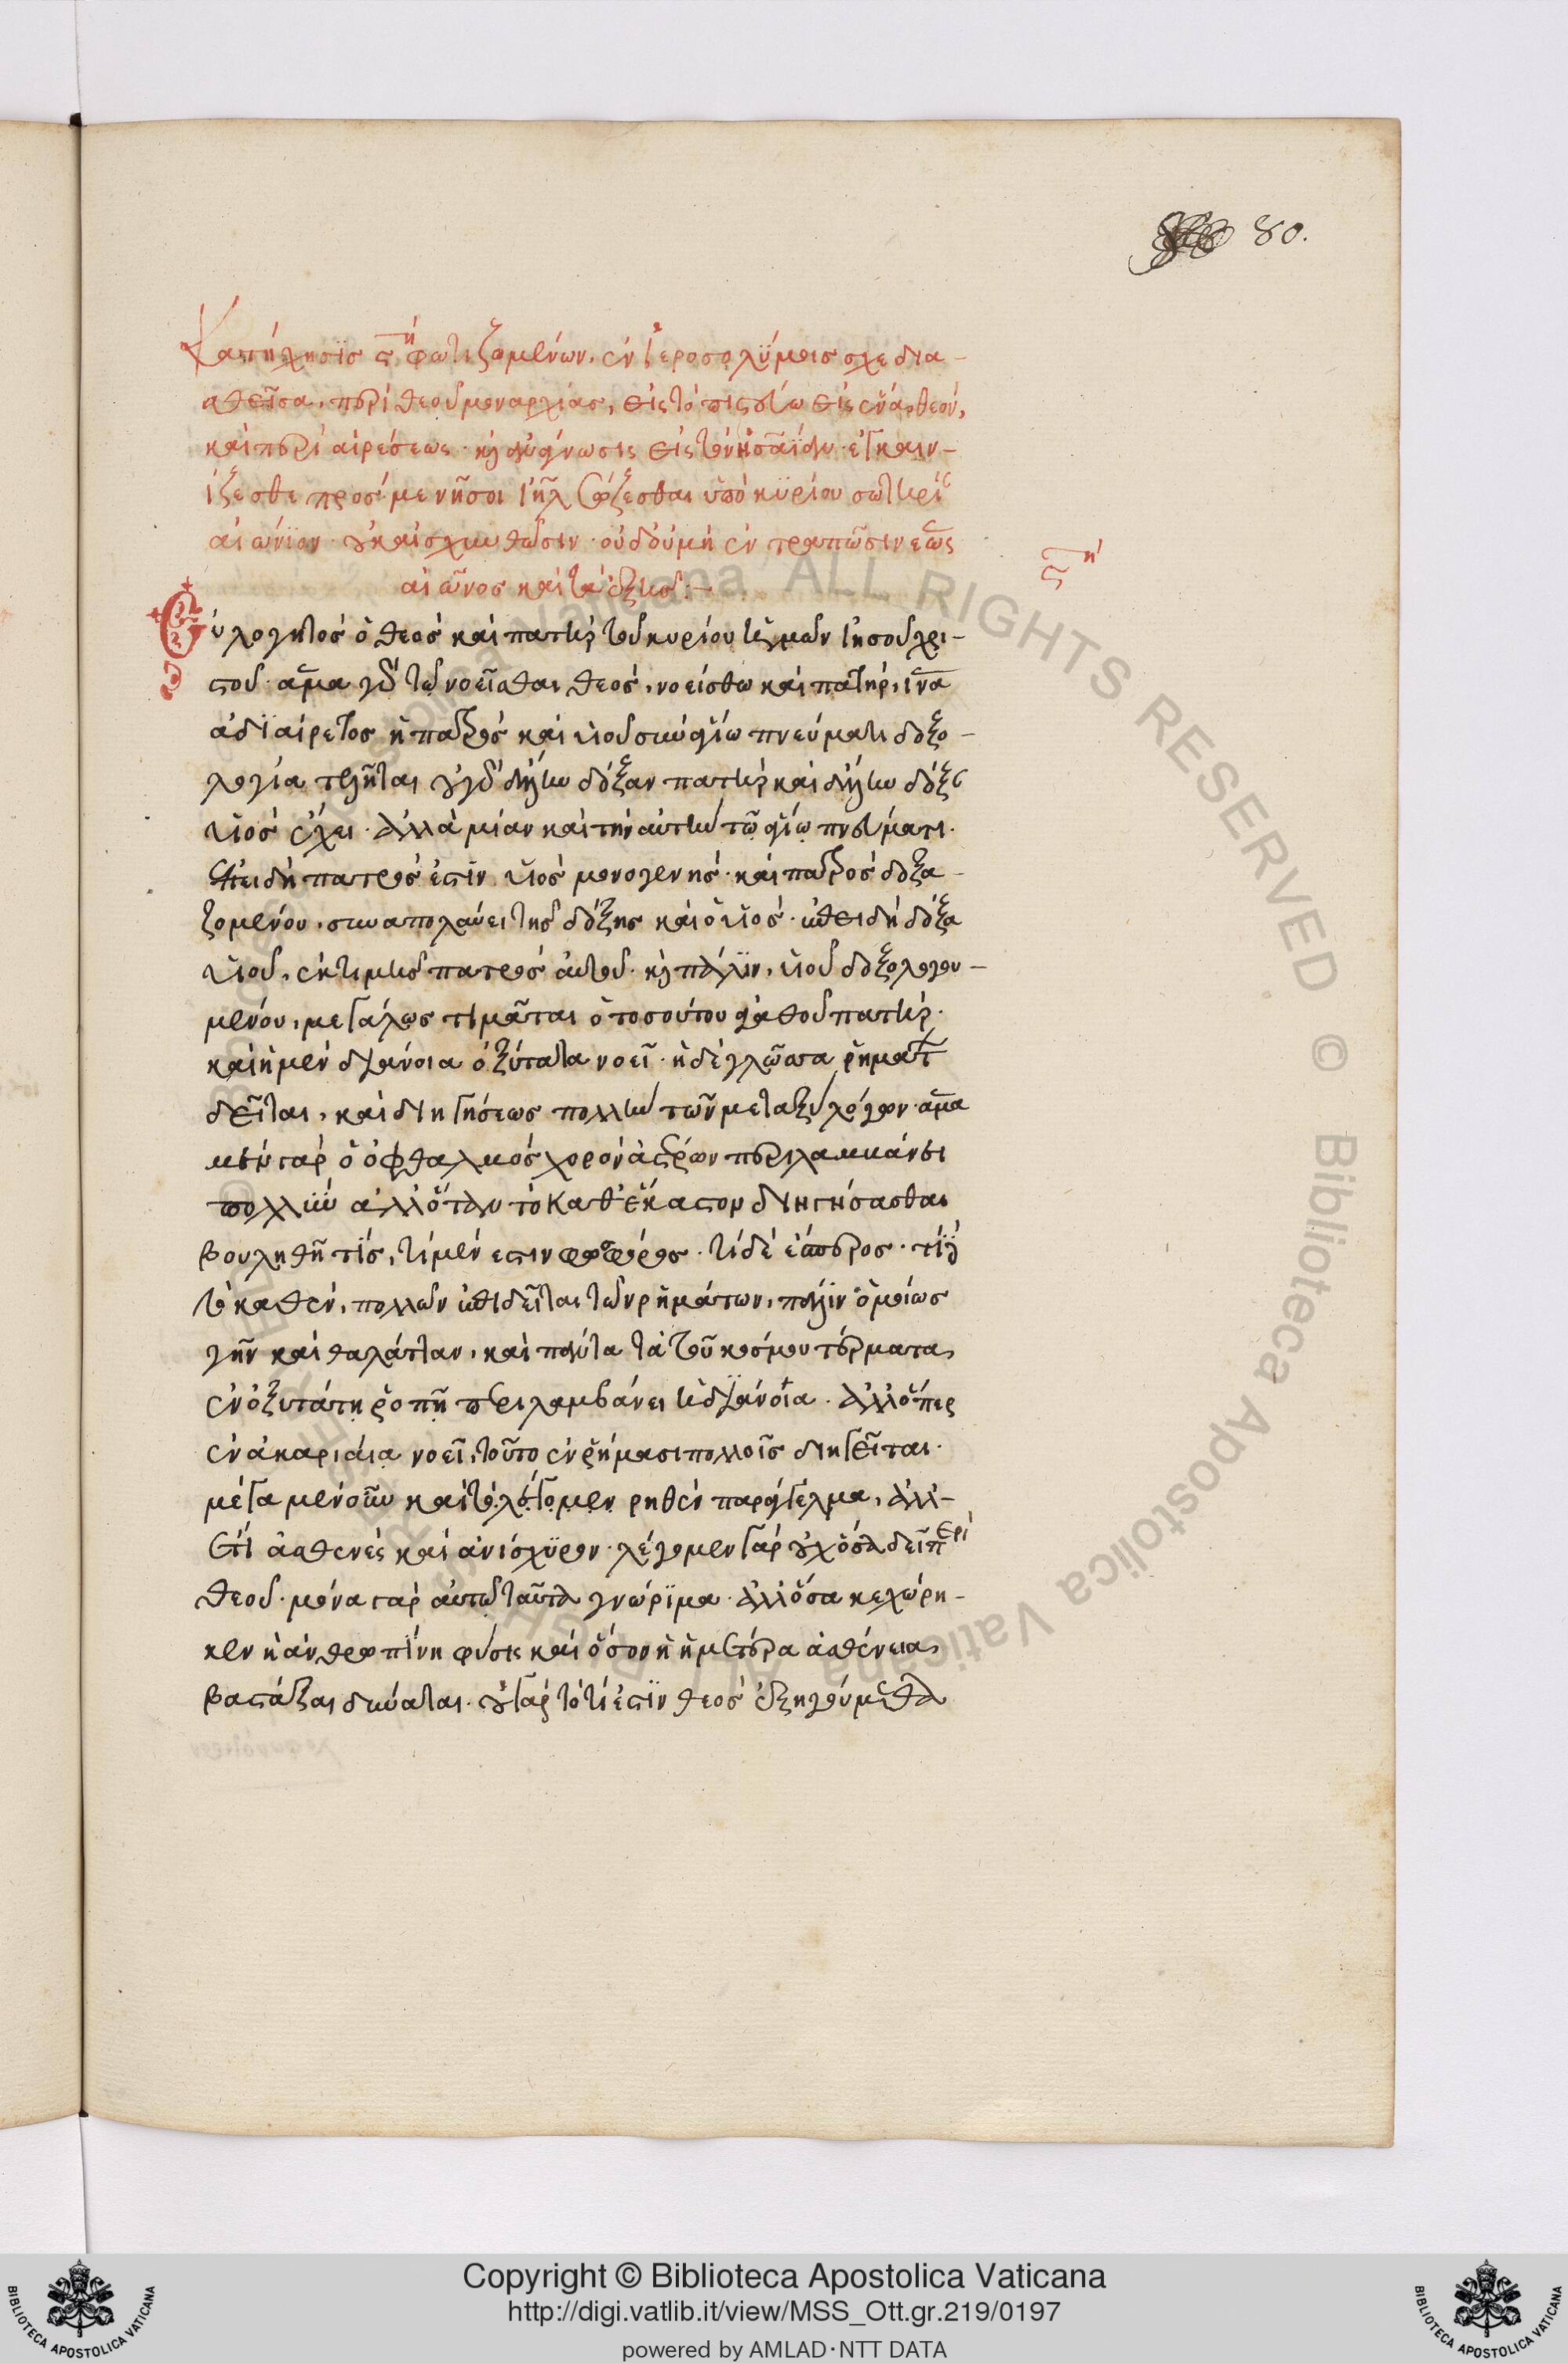 80.
Κατήχησϊς ϛ´η φωτιζομένων, ἐν ἱεροσολύμοις σχεδια-
σθεῖσα, περὶ θεοῦ μοναρχίας, εἰς τὸ πιστεύω εἰς ἕνα θεόν,
καὶ περὶ αἱρέσεως · κ(αὶ) ἀνάγνωσις εἰς τὸν ἡσαΐαν · ἐγκαιν-
ίζεσθε πρός με νῆσοι ἰη̅λ σώζεσθαι ὑπὸ κϋρίου σωτηρίαν
αἰώνϊον · οὐκ αἰσχυνθῶσιν · οὐδ' οὐ μὴ ἐντραπῶσιν ἕως
αἰῶνος καὶ τὰ ἑξῆς :—
ϛ´η
Εὐλογητὸς ὁ θεὸς καὶ πατὴρ τοῦ κυρίου ἡμῶν ἰησοῦ χρι-
στοῦ · ἅμα γὰρ τῶ νοεῖσθαι θεὸς, νοείσθω καὶ πατὴρ, ἵνα
ἀδϊαίρετος ἡ πατρὸς καὶ υἱοῦ σὺν ἁγίω πνεύματι δοξο-
λογία τηρῆται οὐ γὰρ ἄλλην δόξαν πατὴρ καὶ ἄλλην δόξαν
υἱὸς ἔχει · ἀλλὰ μίαν καὶ τὴν αὐτὴν τῷ ἁγίῳ πνεύματι ·
ἐπειδὴ πατρὸς ἐστὶν υἱὸς μονογενής · καὶ πατρὸς δοξα-
ζομένου, συναπολαύει τῆς δόξης καὶ ὁ υἱός · ἐπειδὴ δόξα
υἱοῦ, ἐκ τιμῆς πατρὸς αὐτοῦ · κ(αὶ) πάλϊν, υἱοῦ δοξολογου-
μένου, μεγάλως τιμᾶται ὁ τοσούτου ἀγαθοῦ πατήρ ·
καὶ ἡ μὲν διάνοια ὀξύτατα νοεῖ · ἡ δὲ γλῶσσα ῥημάτων
δεῖται, καὶ διηγήσεως πολλῆς τῶν μεταξὺ λόγων · ἅμα
μὲν γὰρ ὁ ὀφθαλμὸς χορὸν ἄστρων περιλαμβάνει
πολλὺν ἀλλ' ὅταν τὸ καθ' ἕκαστον διηγήσασθαι
βουληθῆ τίς, τί μέν ἐστιν φωσφόρος · τί δὲ ἕσπερος · τί δὲ
τὸ καθ' ἓν, πολλῶν ἐπιδεῖται τῶν ρημάτων, πάλιν ὁμοίως
γῆν καὶ θαλάτταν, καὶ πάντα τὰ τοῦ κόσμου τέρματα,
ἐν ὀξυτάτη ῥοπῆ περιλαμβάνει ἡ διάνοια · ἀλλ' ὅπερ
ἐν ἀκαριαία νοεῖ, τοῦτο ἐν ῥήμασι πολλοῖς διηγεῖται ·
μέγα μὲν οὖν καὶ τὸ λεγόμεν ρηθὲν παράγγελμα, ἀλλ'
ἔτι ἀσθενὲς καὶ ἀνίσχϋρον · λέγομεν γὰρ οὐχ ὅσα δεῖ περὶ
θεοῦ · μόνα γὰρ αὐτῶ ταῦτα γνώρϊμα · ἀλλ' ὅσα κεχώρη-
κεν ἡ ἀνθρωπίνη φύσις καὶ ὅσον ἡ ἡμετέρα ἀσθένεια,
βαστάξαι δύναται · οὐ γὰρ τὸ τί ἐστϊν θεὸς ἐξηγούμεθα
Copyright © Biblioteca Apostolica Vaticana
http://digi.vatlib.it/view/MSS_Ott.gr.219/0197
powered by AMLAD·NTT DATA